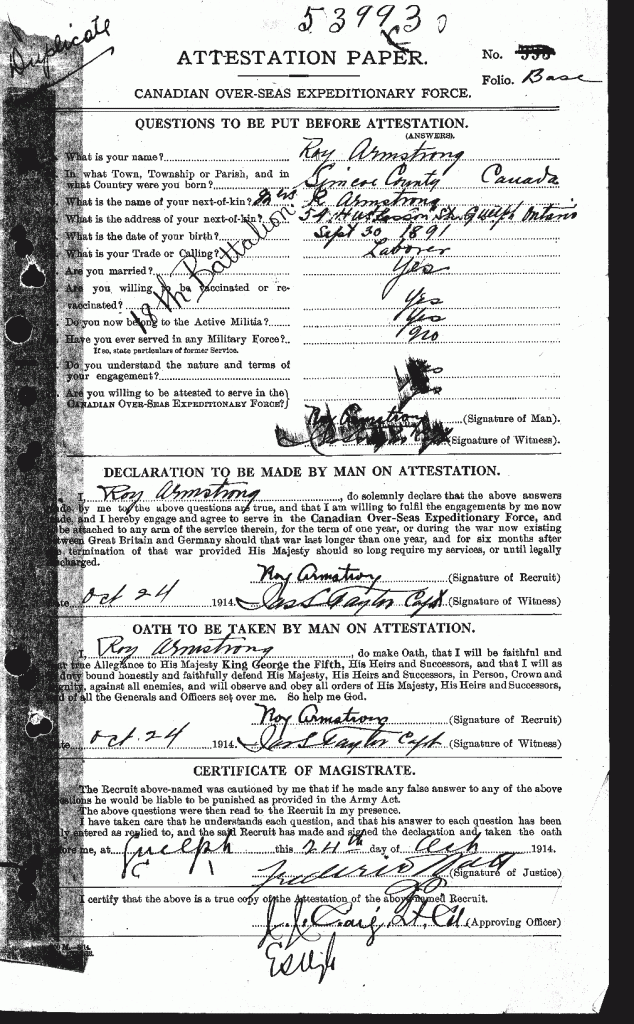 Duplicate
53993
ATTESTATION PAPER.
No.
Folio. Base
CANADIAN OVER-SEAS EXPEDITIONARY FORCE.
QUESTIONS TO BE PUT BEFORE ATTESTATION.
(ANSWERS).
What is your name? Roy Armstrong
In what Town, Township or Parish, and in
what Country were you born? Simcoe County Canada
What is the name of your next-of-kin? Mrs R Armstrong
What is the address of your next-of-kin? 54 St. Guelph Ontario
What is the date of your birth? Sept 30 1891
What is your Trade or Calling? Laborer
Are you married? Yes
Are you willing to be vaccinated or re-
vaccinated? Yes
Do you now belong to the Active Militia? Yes
Have you ever served in any Military Force? No
If so, state particulars of former Service.
Do you understand the nature and terms of
your engagement? Yes
Are you willing to be attested to serve in the
CANADIAN OVER-SEAS EXPEDITIONARY FORCE? Yes
18th Battalion
Roy Armstrong (Signature of Man).
(Signature of Witness).
DECLARATION TO BE MADE BY MAN ON ATTESTATION.
I, Roy Armstrong, do solemnly declare that the above answers
made by me to the above questions are true, and that I am willing to fulfil the engagements by me now
made, and I hereby engage and agree to serve in the Canadian Over-Seas Expeditionary Force, and
be attached to any arm of the service therein, for the term of one year, or during the war now existing
between Great Britain and Germany should that war last longer than one year, and for six months after
the termination of that war provided His Majesty should so long require my services, or until legally
discharged.
Roy Armstrong (Signature of Recruit)
Date Oct 24 1914. Jas S Taylor Capt. (Signature of Witness)
OATH TO BE TAKEN BY MAN ON ATTESTATION.
I, Roy Armstrong, do make Oath, that I will be faithful and
bear true Allegiance to His Majesty King George the Fifth, His Heirs and Successors, and that I will as
in duty bound honestly and faithfully defend His Majesty, His Heirs and Successors, in Person, Crown and
Dignity, against all enemies, and will observe and obey all orders of His Majesty, His Heirs and Successors,
and of all the Generals and Officers set over me. So help me God.
Roy Armstrong (Signature of Recruit)
Date Oct 24 1914. Jas S Taylor Capt (Signature of Witness)
CERTIFICATE OF MAGISTRATE.
The Recruit above-named was cautioned by me that if he made any false answer to any of the above
questions he would be liable to be punished as provided in the Army Act.
The above questions were then read to the Recruit in my presence.
I have taken care that he understands each question, and that his answer to each question has been
duly entered as replied to, and the said Recruit has made and signed the declaration and taken the oath
before me, at Guelph this 24th day of Oct 1914.
Frederick Watt (Signature of Justice)
JP
I certify that the above is a true copy of the Attestation of the above-named Recruit.
J. J. Craig, Lt. Col (Approving Officer)